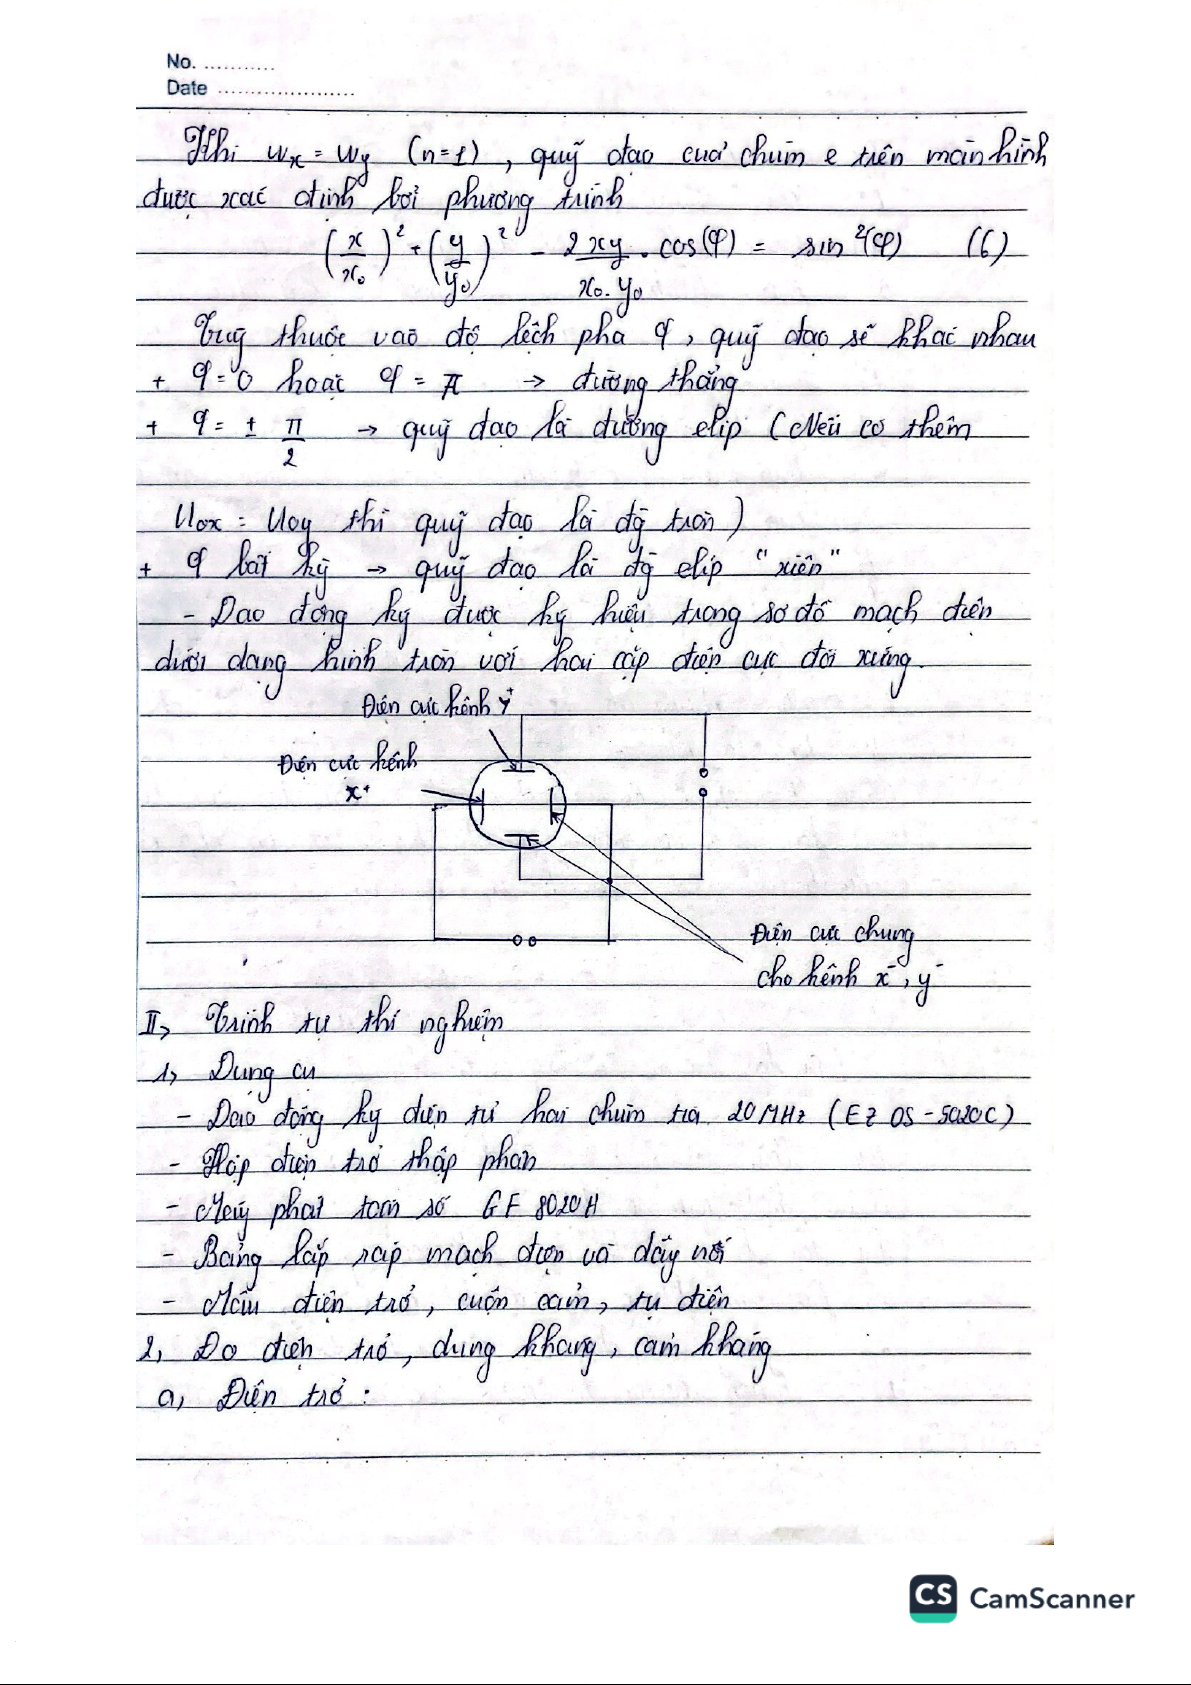 No. ...........
Date .....................
Khi ωx = ωy (n=1), quỹ đạo của chùm e trên màn hình
được xác định bởi phương trình
(x/x₀)² + (y/y₀)² - 2xy/(x₀.y₀) . cos(φ) = sin²(φ) (6)
Tuỳ thuộc vào độ lệch pha φ, quỹ đạo sẽ khác nhau
+ φ = 0 hoặc φ = π → đường thẳng
+ φ = ± π/2 → quỹ đạo là đường elip (Nếu có thêm
U₀x = U₀y thì quỹ đạo là đg tròn)
+ φ bất kỳ → quỹ đạo là đg elip "xiên"
- Dao động ký được ký hiệu trong sơ đồ mạch điện
dưới dạng hình tròn với hai cặp điện cực đối xứng.
Điện cực kênh Y⁺
Điện cực kênh
x⁺
Điện cực chung
cho kênh x⁻, y⁻
II, Trình tự thí nghiệm
1, Dụng cụ
- Dao động ký điện tử hai chùm tia 20MHz (EZ OS-5020C)
- Hộp điện trở thập phân
- Máy phát tần số GF 8020H
- Bảng lắp ráp mạch điện và dây nối
- Mẫu điện trở, cuộn cảm, tụ điện
2, Đo điện trở, dung kháng, cảm kháng
a, Điện trở:
CS CamScanner